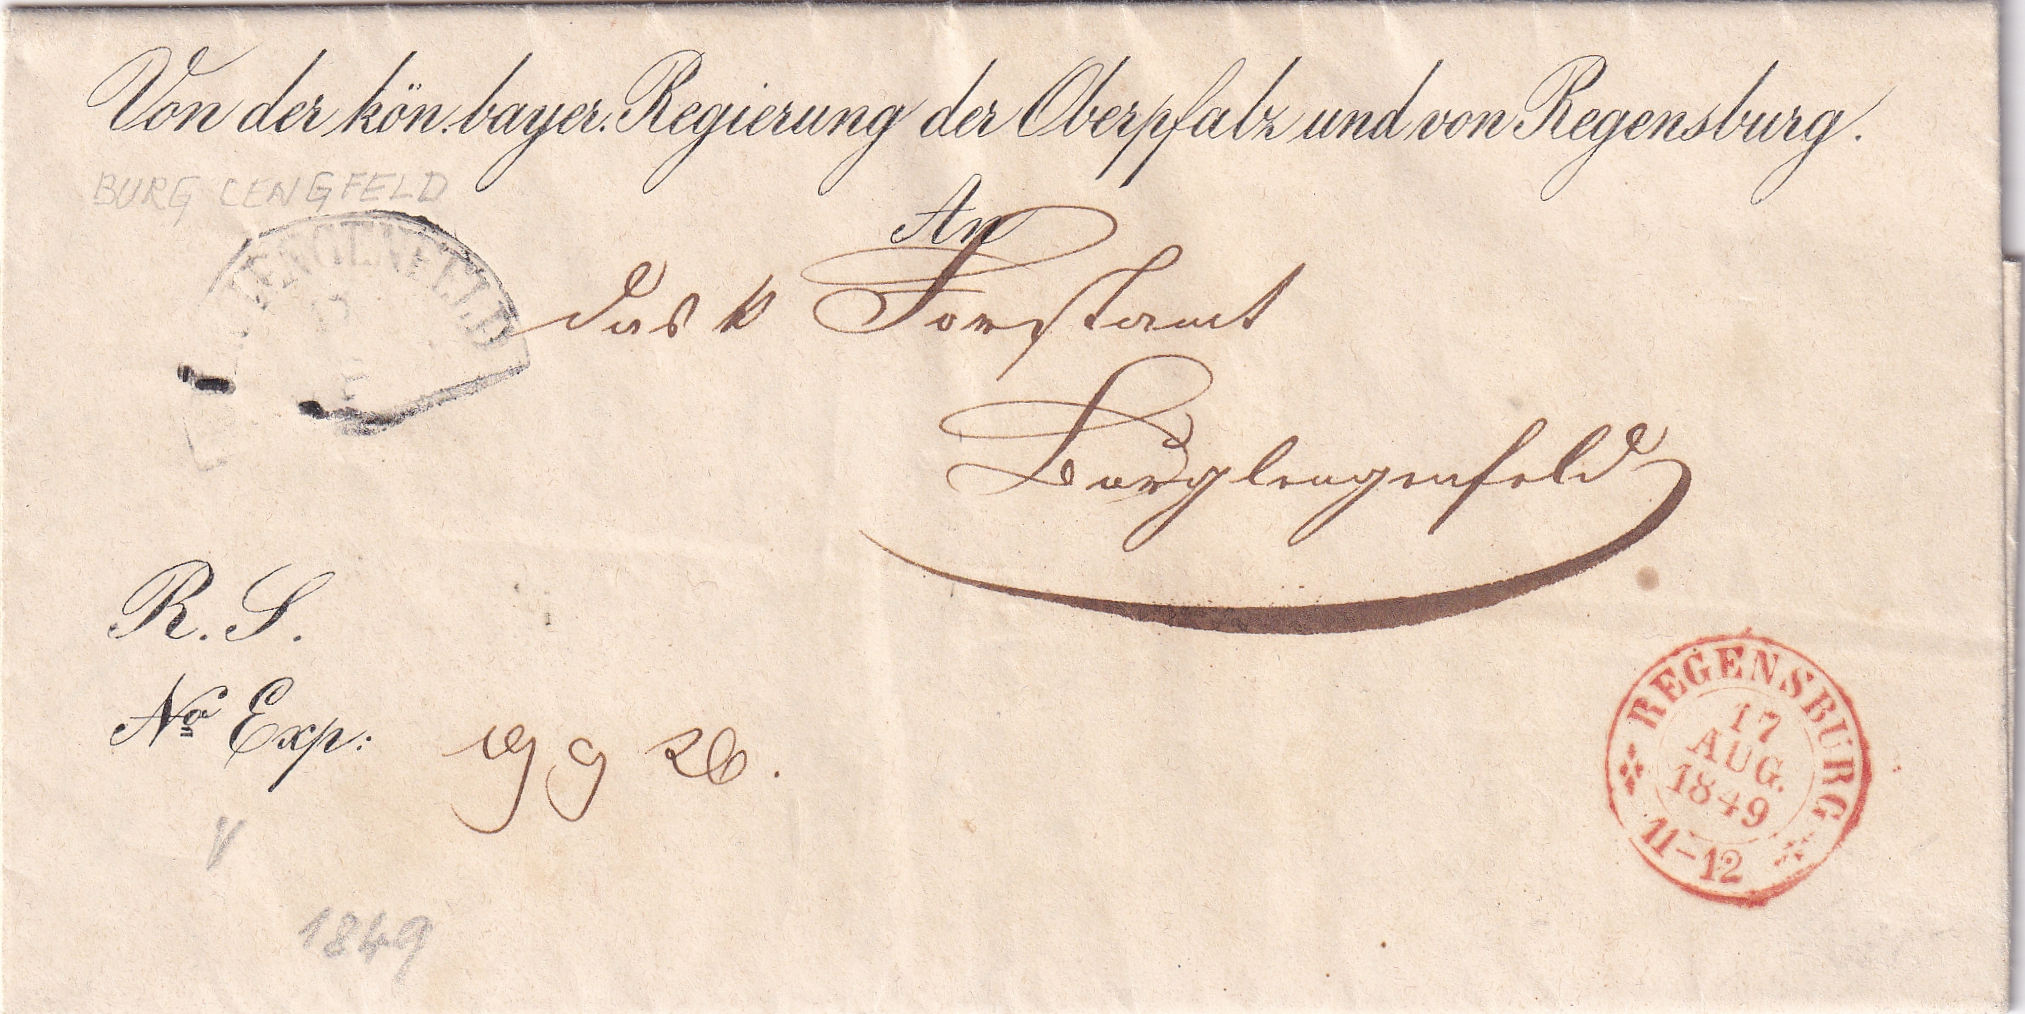 Von der kön. bayer. Regierung der Oberpfalz und von Regensburg.
BURG LENGFELD
LENGENFELD
An
das k Forstamt
Burglengenfeld
R. S.
No Exp:
REGENSBURG
17
AUG.
1849
11-12
1849